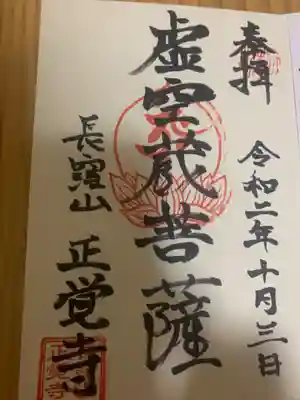 奉拝
令和二年十月三日
虚空蔵菩薩
長窪山
正覚寺
正覚寺